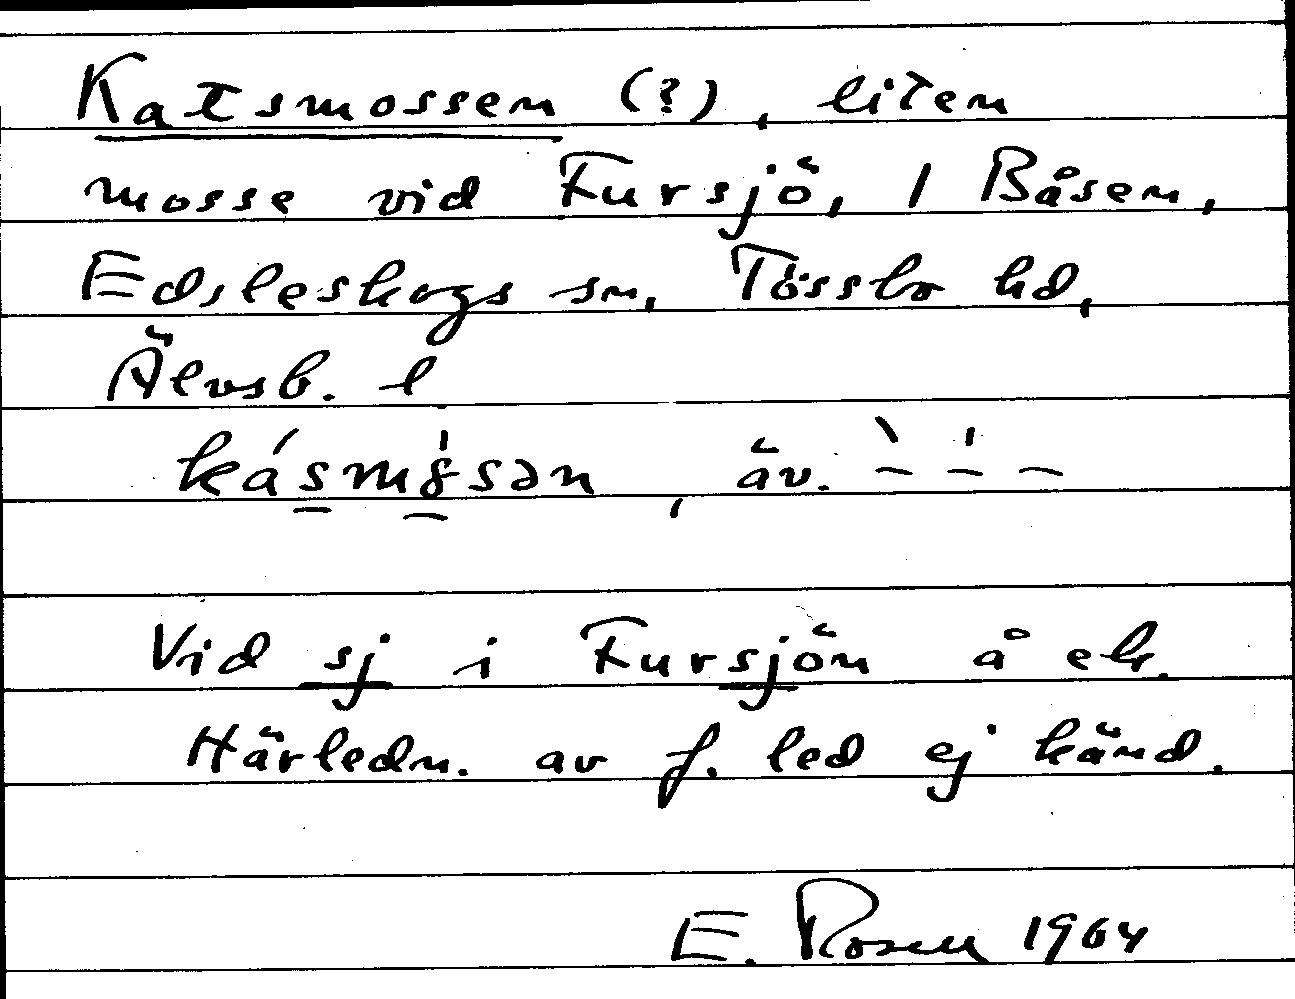 Katsmossen (?), liten
mosse vid Fursjö, 1 Båsen,
Edsleskogs sn, Tössbo hd,
Älvsb. l
kásmȣ́sən, äv. – – –
Vid sj i Fursjön å ek.
Härledn. av f. led ej känd.
E. Rosen 1964